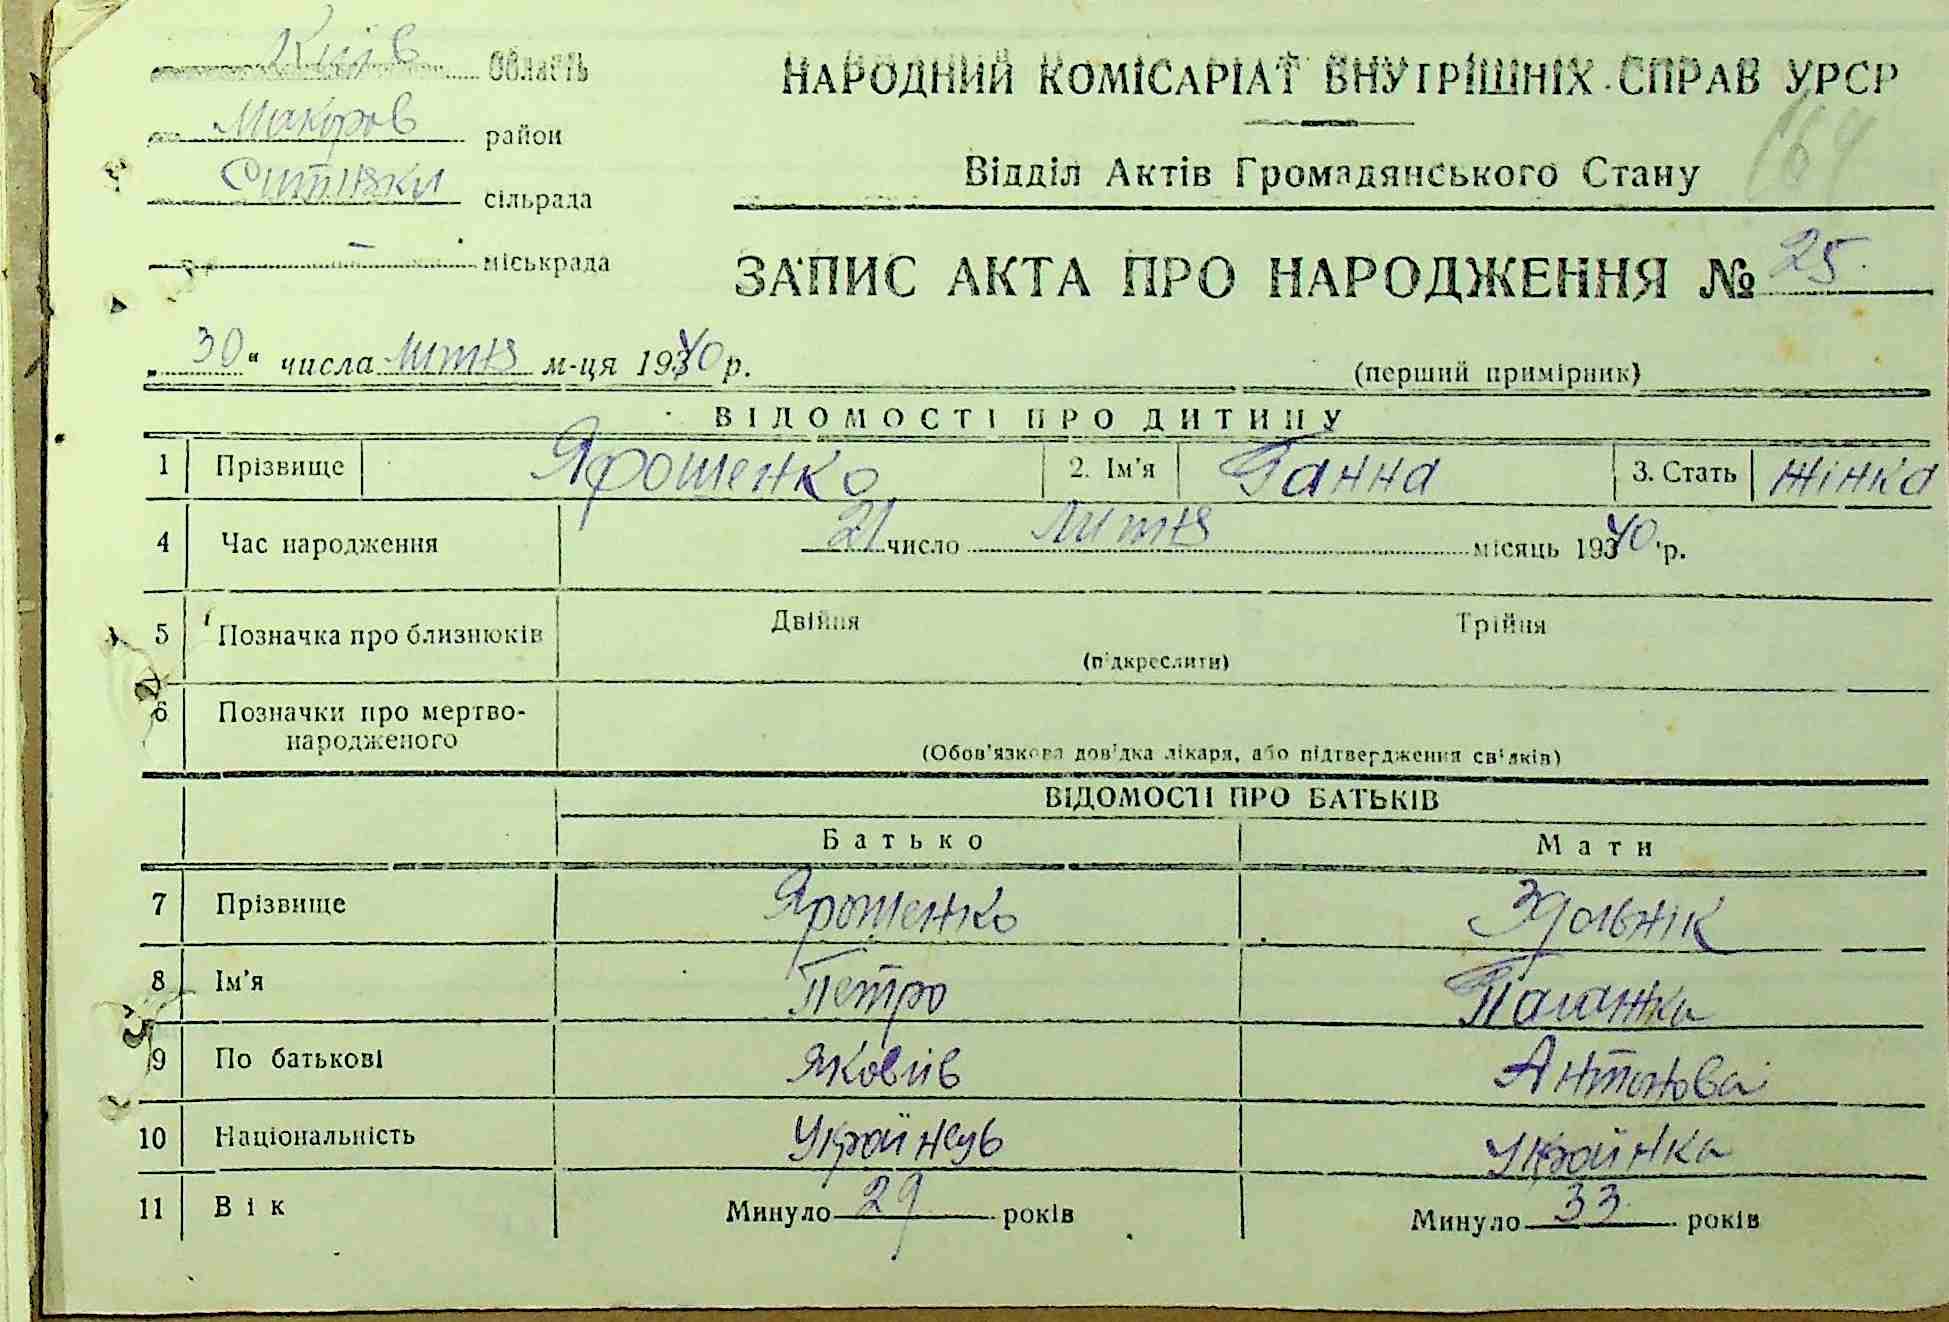 Київ область
Макорів район
Ситняки сільрада
міськрада
НАРОДНИЙ КОМІСАРІАТ ВНУТРІШНІХ СПРАВ УРСР
164
Відділ Актів Громадянського Стану
ЗАПИС АКТА ПРО НАРОДЖЕННЯ № 25.
„30“ числа липня м-ця 1940 р.
(перший примірник)
ВІДОМОСТІ ПРО ДИТИНУ
1 Прізвище Ярошенко 2. Ім'я Ганна 3. Стать жінка
4 Час народження 21 число липня місяць 1940 р.
5 Позначка про близнюків Двійня Трійня
(підкреслити)
6 Позначки про мертво-
народженого
(Обов'язкова довідка лікаря, або підтвердження свідків)
ВІДОМОСТІ ПРО БАТЬКІВ
Батько Мати
7 Прізвище Ярошенко Здольнік
8 Ім'я Петро
9 По батькові Яковів Антонова
10 Національність Українець Українка
11 Вік Минуло 29 років Минуло 33 років